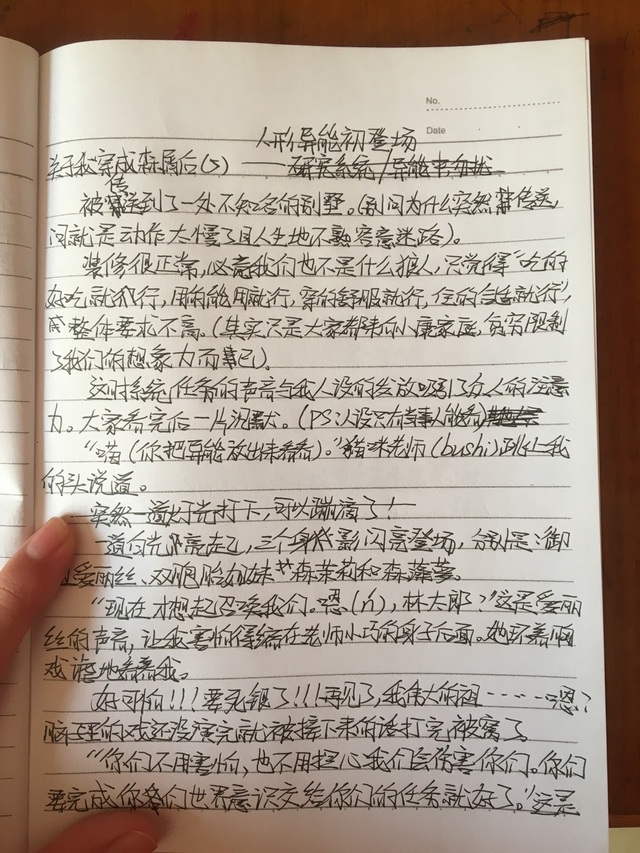 No.
Date
人形异能初登场
关于我穿成森鸥后(5) —— 研究系统/异能
被传送到了一处不知名的别墅。(别问为什么突然传送,
问就是动作太慢了且人生地不熟容易迷路)。
装修很正常,必竟我们也不是什么狼人,只觉得“吃的
好吃就行,用的能用就行,穿的舒服就行,住的合适就行”,
整体要求不高。(其实只是大家都来自小康家庭,贫穷限制
了我们的想象力而已)。
这时系统任务的声音与我人设的绽放吸引了众人的注意
力。大家看完后一片沉默。(PS:人设只有当事人能看)
“喵(你把异能放出来看看)。”猫咪老师(bushi)跳上我
的头说道。
突然一道灯光打下,可以蹦滴了!
一道白光亮起,三个身影闪亮登场,分别是:御
爱丽丝、双胞胎姐妹森茉莉和森
“现在才想起召唤我们。恩(ń),林太郎?”这是爱丽
丝的声音,让我害怕得缩在老师小巧的身子后面。她环着胸
戏谑地看着我。
好可怕!!!要死翘了!!!再见了,我伟大的祖……恩?
脑子里的戏还没演完就被接下来的话打完被窝了
“你们不用害怕,也不用担心我们会伤害你们。你们
要完成你们世界意识交给你们的任务就好了。”这是